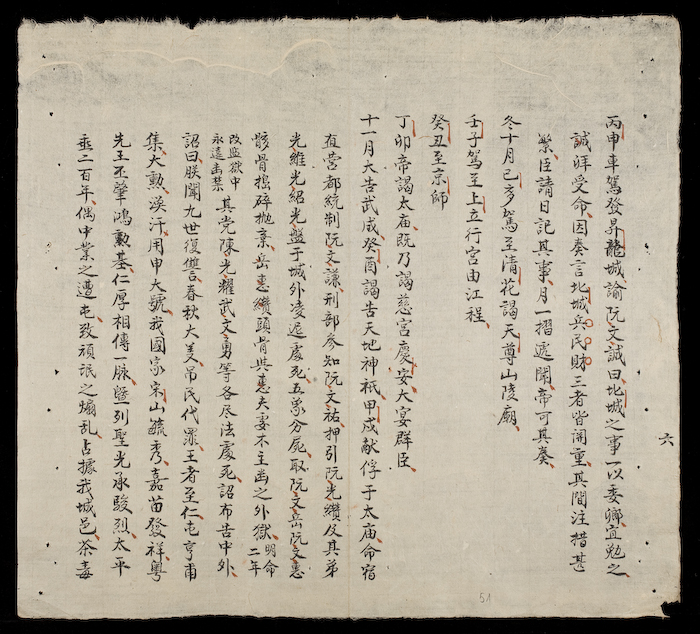 丙申車駕發昇龍城諭阮文誠曰北城之事一以委卿宜勉之
誠拜受命因奏言北城兵民財三者皆関重其間注措甚
繁臣請日記其事月一摺遞聞帝可其奏
冬十月己亥駕至清花謁天尊山陵廟
壬子駕至上立行宮由江程
癸丑至京師
丁卯帝謁太庙既乃謁慈宮慶安大宴群臣
十一月大告武成癸酉謁告天地神祇甲戍献俘于太庙命宿
直营都統制阮文謙刑部参知阮文祐押引阮光纘及其弟
光維光紹光盤于城外凌遲處死五象分屍取阮文岳阮文惠
骸骨搗碎抛棄岳惠纘頭骨與惠夫妻木主幽之外獄明命二年
改監獄中永遠击禁其党陳光耀武文勇等各尽法處死詔布告中外
詔曰朕聞九世復讐春秋大義吊民代罪王者至仁屯亨甫
集大勲渙汗用申大號我國家宋山毓秀嘉苗發祥粤
先王丕肇鴻勲基仁厚相傳一脉曁列聖光承駿烈太平
垂二百年偶中業之遭屯致頑氓之煽乱占據我城邑荼毒
六
51